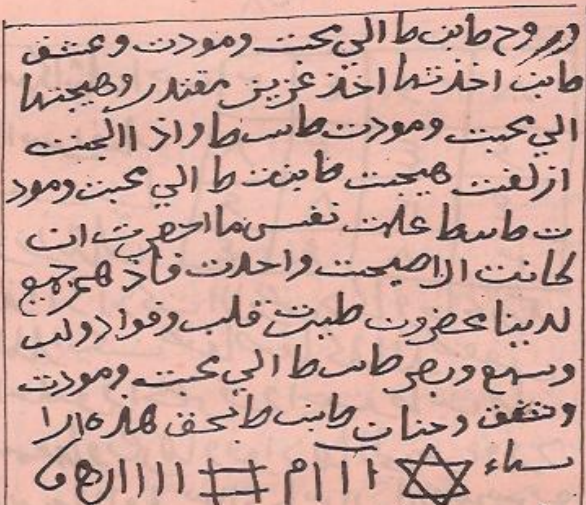 وروح طابت ط الي محبت ومودت وعشق
طابت اخذتها اخذ عزيز مقتدر وهيجتها
الي محبت ومودت طابت ط واذ االجنت
ازلفت هيجت طابت ط الي محبت ومود
ت طابت ط علمت نفس ما احضرت ان
كانت الا صيحت واحدت فاذ هم جميع
لدينا محضرون طبت قلب وفواد ولب
وسمع وبصر طابت ط الي محبت ومودت
وشفق وحنان طابت ط بحق هذه الا
سماء ااا م اااا ه و